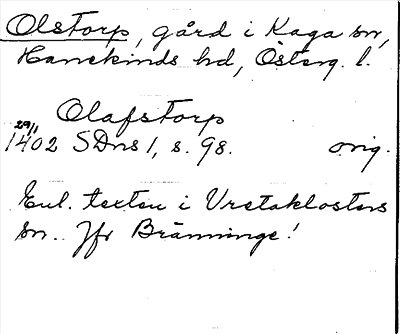 Olstorp, gård i Kaga sn,
Hanekinds hd, Österg. l.
Olafstorp
29/1
1402 SDns 1, s. 98. orig.
Enl. texten i Vretaklosters
sn. Jfr Bränninge!